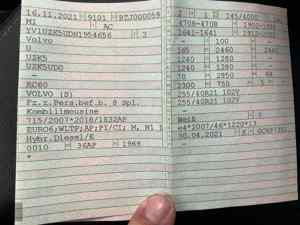 16.11.2021 9101 BZJ000059
M1 AC
YV1UZK5UDN1954656 3
Volvo
U
UZK5
UZK5UD0
-
XC60
VOLVO (S)
Fz.z.Pers.bef.b. 8 Spl.
Kombilimousine
715/2007*2018/1832AP
EURO6;WLTP;AP;PI/CI; M, N1 I
Hybr.Diesel/E
0010 36AP 1969
*
2 1 145/4000
4708-4708 1902-1902
1641-1641
100
185 2460 2460
1240 1280 -
1240 1280 -
70 2950 68
2300 750 5 -
255/40R21 102V
255/40R21 102V
-
-
Weiß
e4*2007/46*1220*13
30.04.2021 K